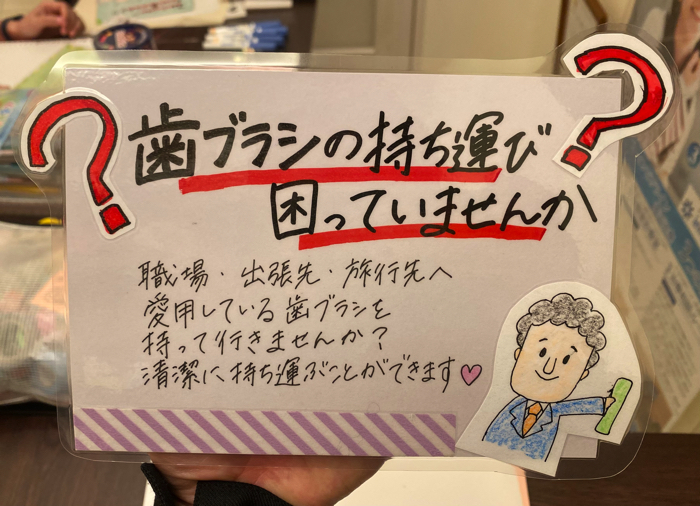 歯ブラシの持ち運び
困っていませんか
職場・出張先・旅行先へ
愛用している歯ブラシを
持って行きませんか?
清潔に持ち運ぶことができます♡
? ?